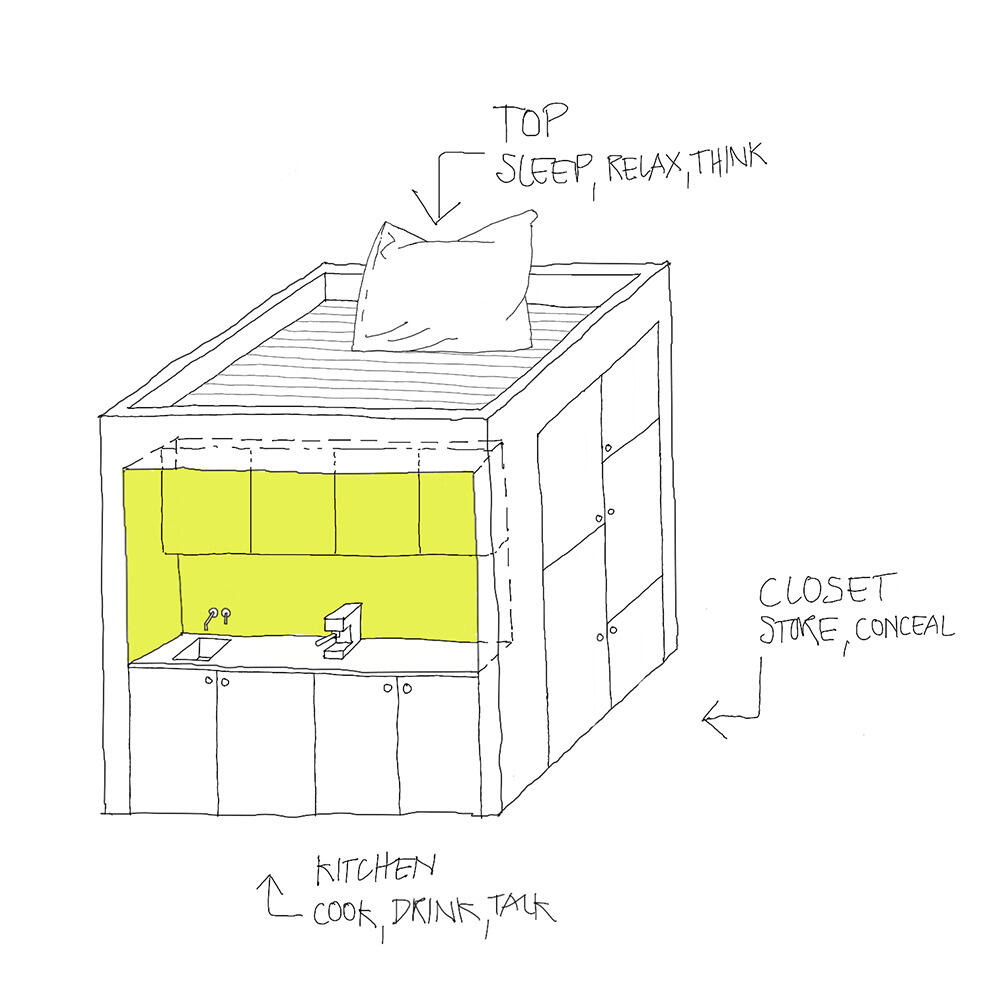 TOP
SLEEP, RELAX, THINK
CLOSET
STORE, CONCEAL
KITCHEN
COOK, DRINK, TALK